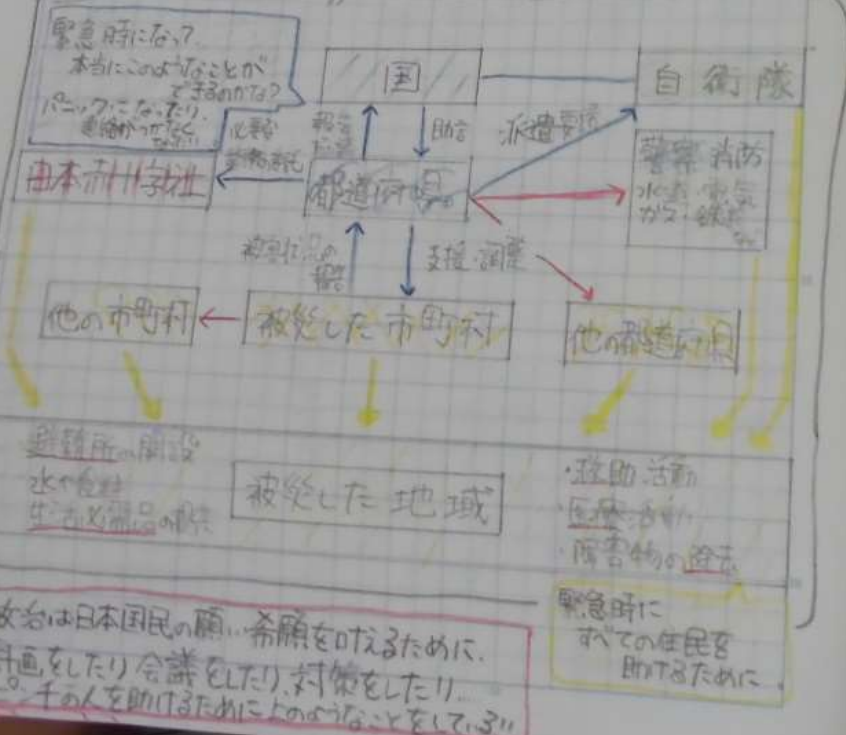 緊急時になって
本当にこのようなことが
できるのかな?
パニックになったり、
国
自衛隊
報告
助言
派遣要請
必要な
日本赤十字社
都道府県
警察 消防
水道・電気
ガス・鉄道
など
被害状況の
報告
支援・調整
他の市町村
被災した市町村
他の都道府県
避難所の開設
水や食料
生活必需品の
被災した地域
・救助活動
・医療活動
・障害物の除去
緊急時に
すべての住民を
助けるために
政治は日本国民の願い、希願を叶えるために、
計画をしたり会議をしたり、対策をしたり…
ピンチの人を助けるために上のようなことをしている!!